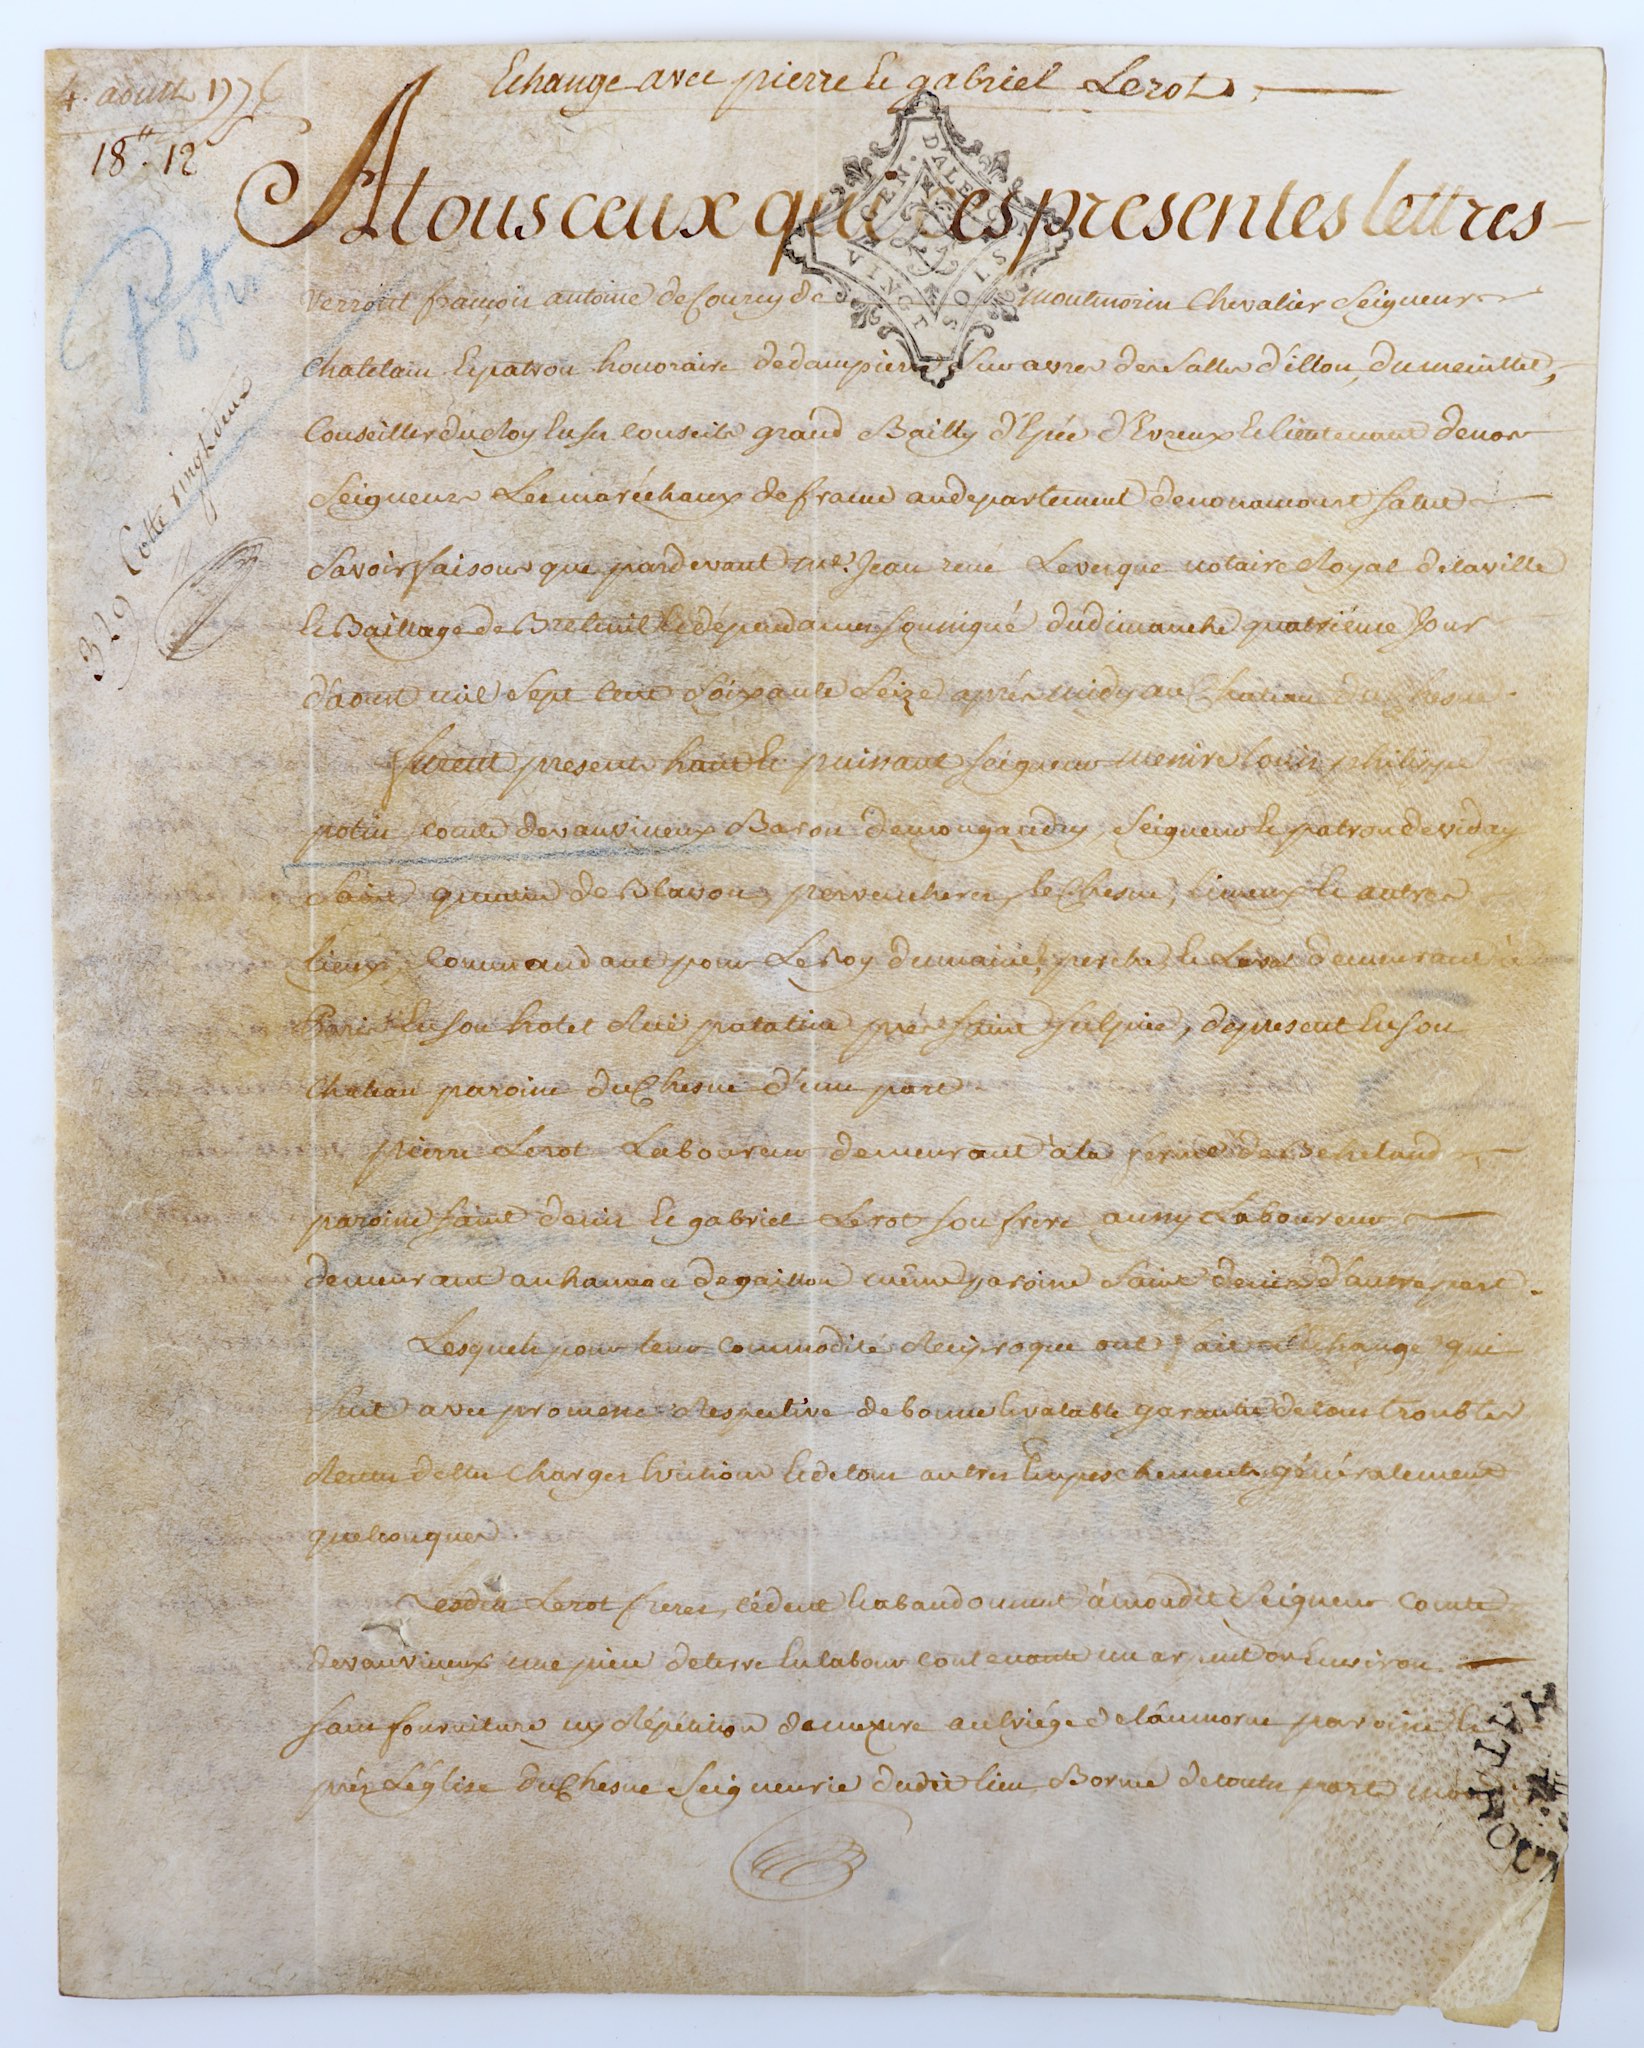 4. aoust 1776
Echange avec pierre et gabriel Lerot
18" 12
A tous ceux qui ces presentes lettres
GEN. DALENÇON
VINGT SOLS
verront françois antoine de Courcy de Montmorin Chevalier Seigneur
Chatelain et patron honoraire de dampierre Sur avre des Salles d'illou, du
Conseiller du Roy en ses Conseils grand Bailly d'Epée d'Evreux et lieutenant de nos
Seigneurs Les maréchaux de france au departement de nonancourt Salut
329 Cotte vingt deux
Savoir faisons que pardevant me. Jean rené Levesque notaire Royal de la ville
et Baillage de Breteuil et dépendances soussigné du dimanche quatriéme Jour
d'aoust mil Sept Cent Soixante Seize aprés midy au Chateau du Chesne
furent presents haut et puissant Seigneur messire louis philippe
potin Comte de vauvineux Baron de mongaudry, Seigneur et patron de viday
Saint quentin de Blavou, pervencheres, le Chesne, limeux et autres
lieux, Commandant pour Le Roy du maine, perche et Laval demeurant à
Paris En son hotel Ruë palatine prés Saint Sulpice, de present En son
Chateau paroisse du Chesne d'une part
pierre Lerot Laboureur demeurant à la ferme de
paroisse saint denis et gabriel Lerot son frere aussy Laboureur
demeurant au hameau de gaillon même paroisse Saint denis d'autre part.
Lesquels pour leur Commodité Reciproque ont fait l'Echange qui
suit avec promesse Respective de bonne et valable garantie de tous troubles
dettes Charges Evictions et de tous autres Empeschements généralement
quelconques.
Lesdits Lerot freres, cédent et abandonnent à mondit Seigneur Comte
de vauvineux une piece de terre En labour contenante un arpent ou Environ
sans fourniture ny Répétition de mesure au triége de l'aumosne paroisse et
prés L'église du Chesne Seigneurie dudit lieu Borné de toutes parts